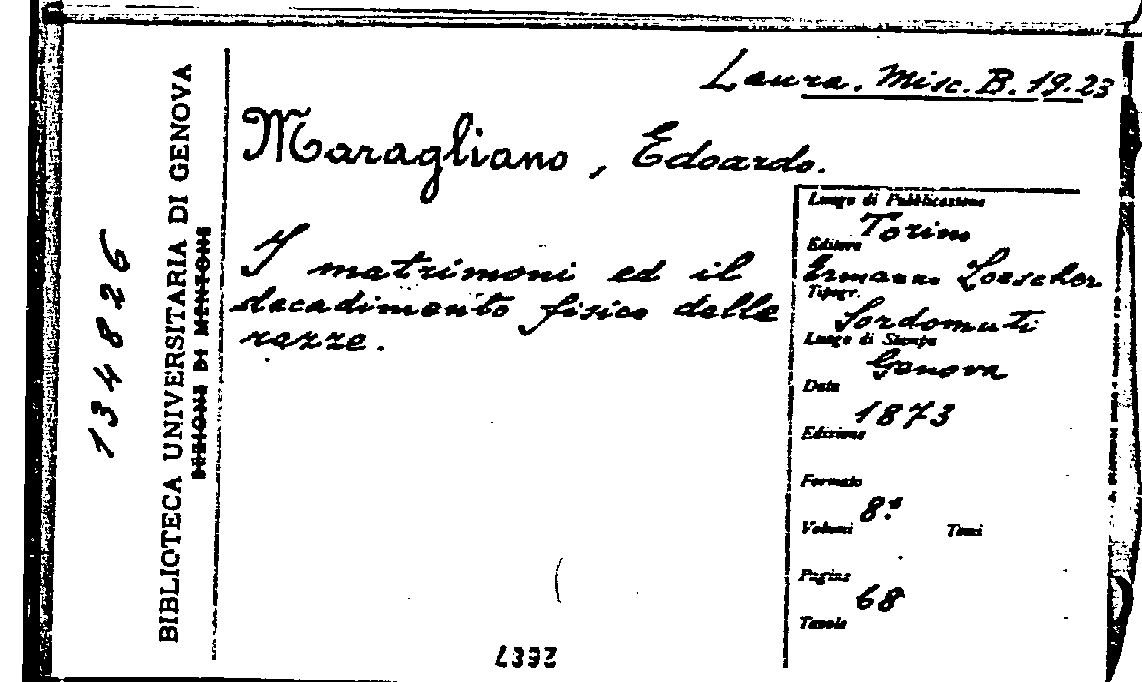 Laura. Misc. B. 19.23
Maragliano, Edoardo.
I matrimoni ed il
decadimento fisico delle
razze.
Luogo di Pubblicazione
Torino
Editore
Ermanno Loescher
Tipogr.
Sordomuti
Luogo di Stampa
Genova
Data
1873
Edizione
Formato
8.°
Volumi Tomi
Pagine
68
Tavole
BIBLIOTECA UNIVERSITARIA DI GENOVA
134826